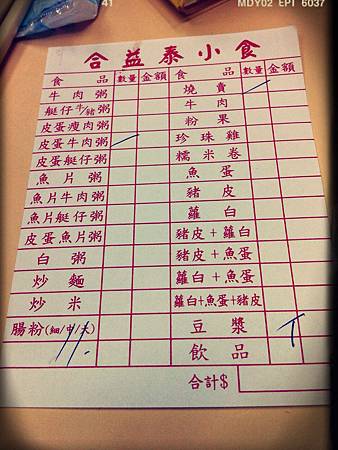 41
MDY02 EPI 6037
合益泰小食
食品 數量 金額 食品 數量 金額
牛肉粥 燒賣
艇仔牛/豬粥 牛肉
皮蛋瘦肉粥 粉果
皮蛋牛肉粥 珍珠雞
皮蛋艇仔粥 糯米卷
魚片粥 魚蛋
魚片牛肉粥 豬皮
魚片艇仔粥 蘿白
皮蛋魚片粥 豬皮+蘿白
白粥 豬皮+魚蛋
炒麵 蘿白+魚蛋
炒米 蘿白+魚蛋+豬皮
腸粉(細/中/大) 豆漿
飲品
合計$